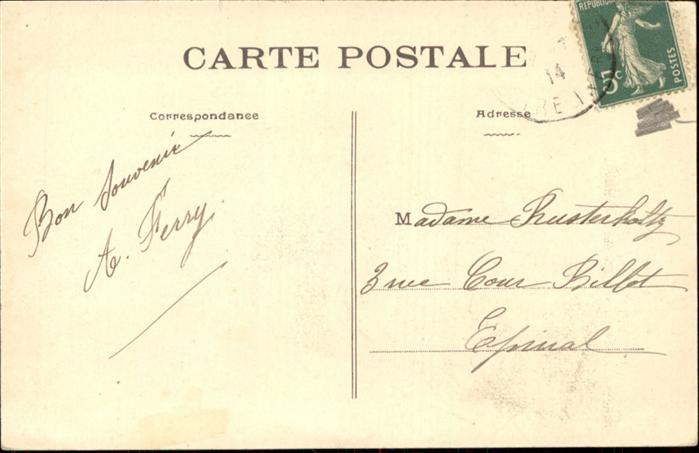 CARTE POSTALE
RÉPUBLIQUE
POSTES
5c
14
Correspondance
Adresse
Bon Souvenir
A. Ferry
Madame Rusterholtz
3 rue Cour Billot
Epinal